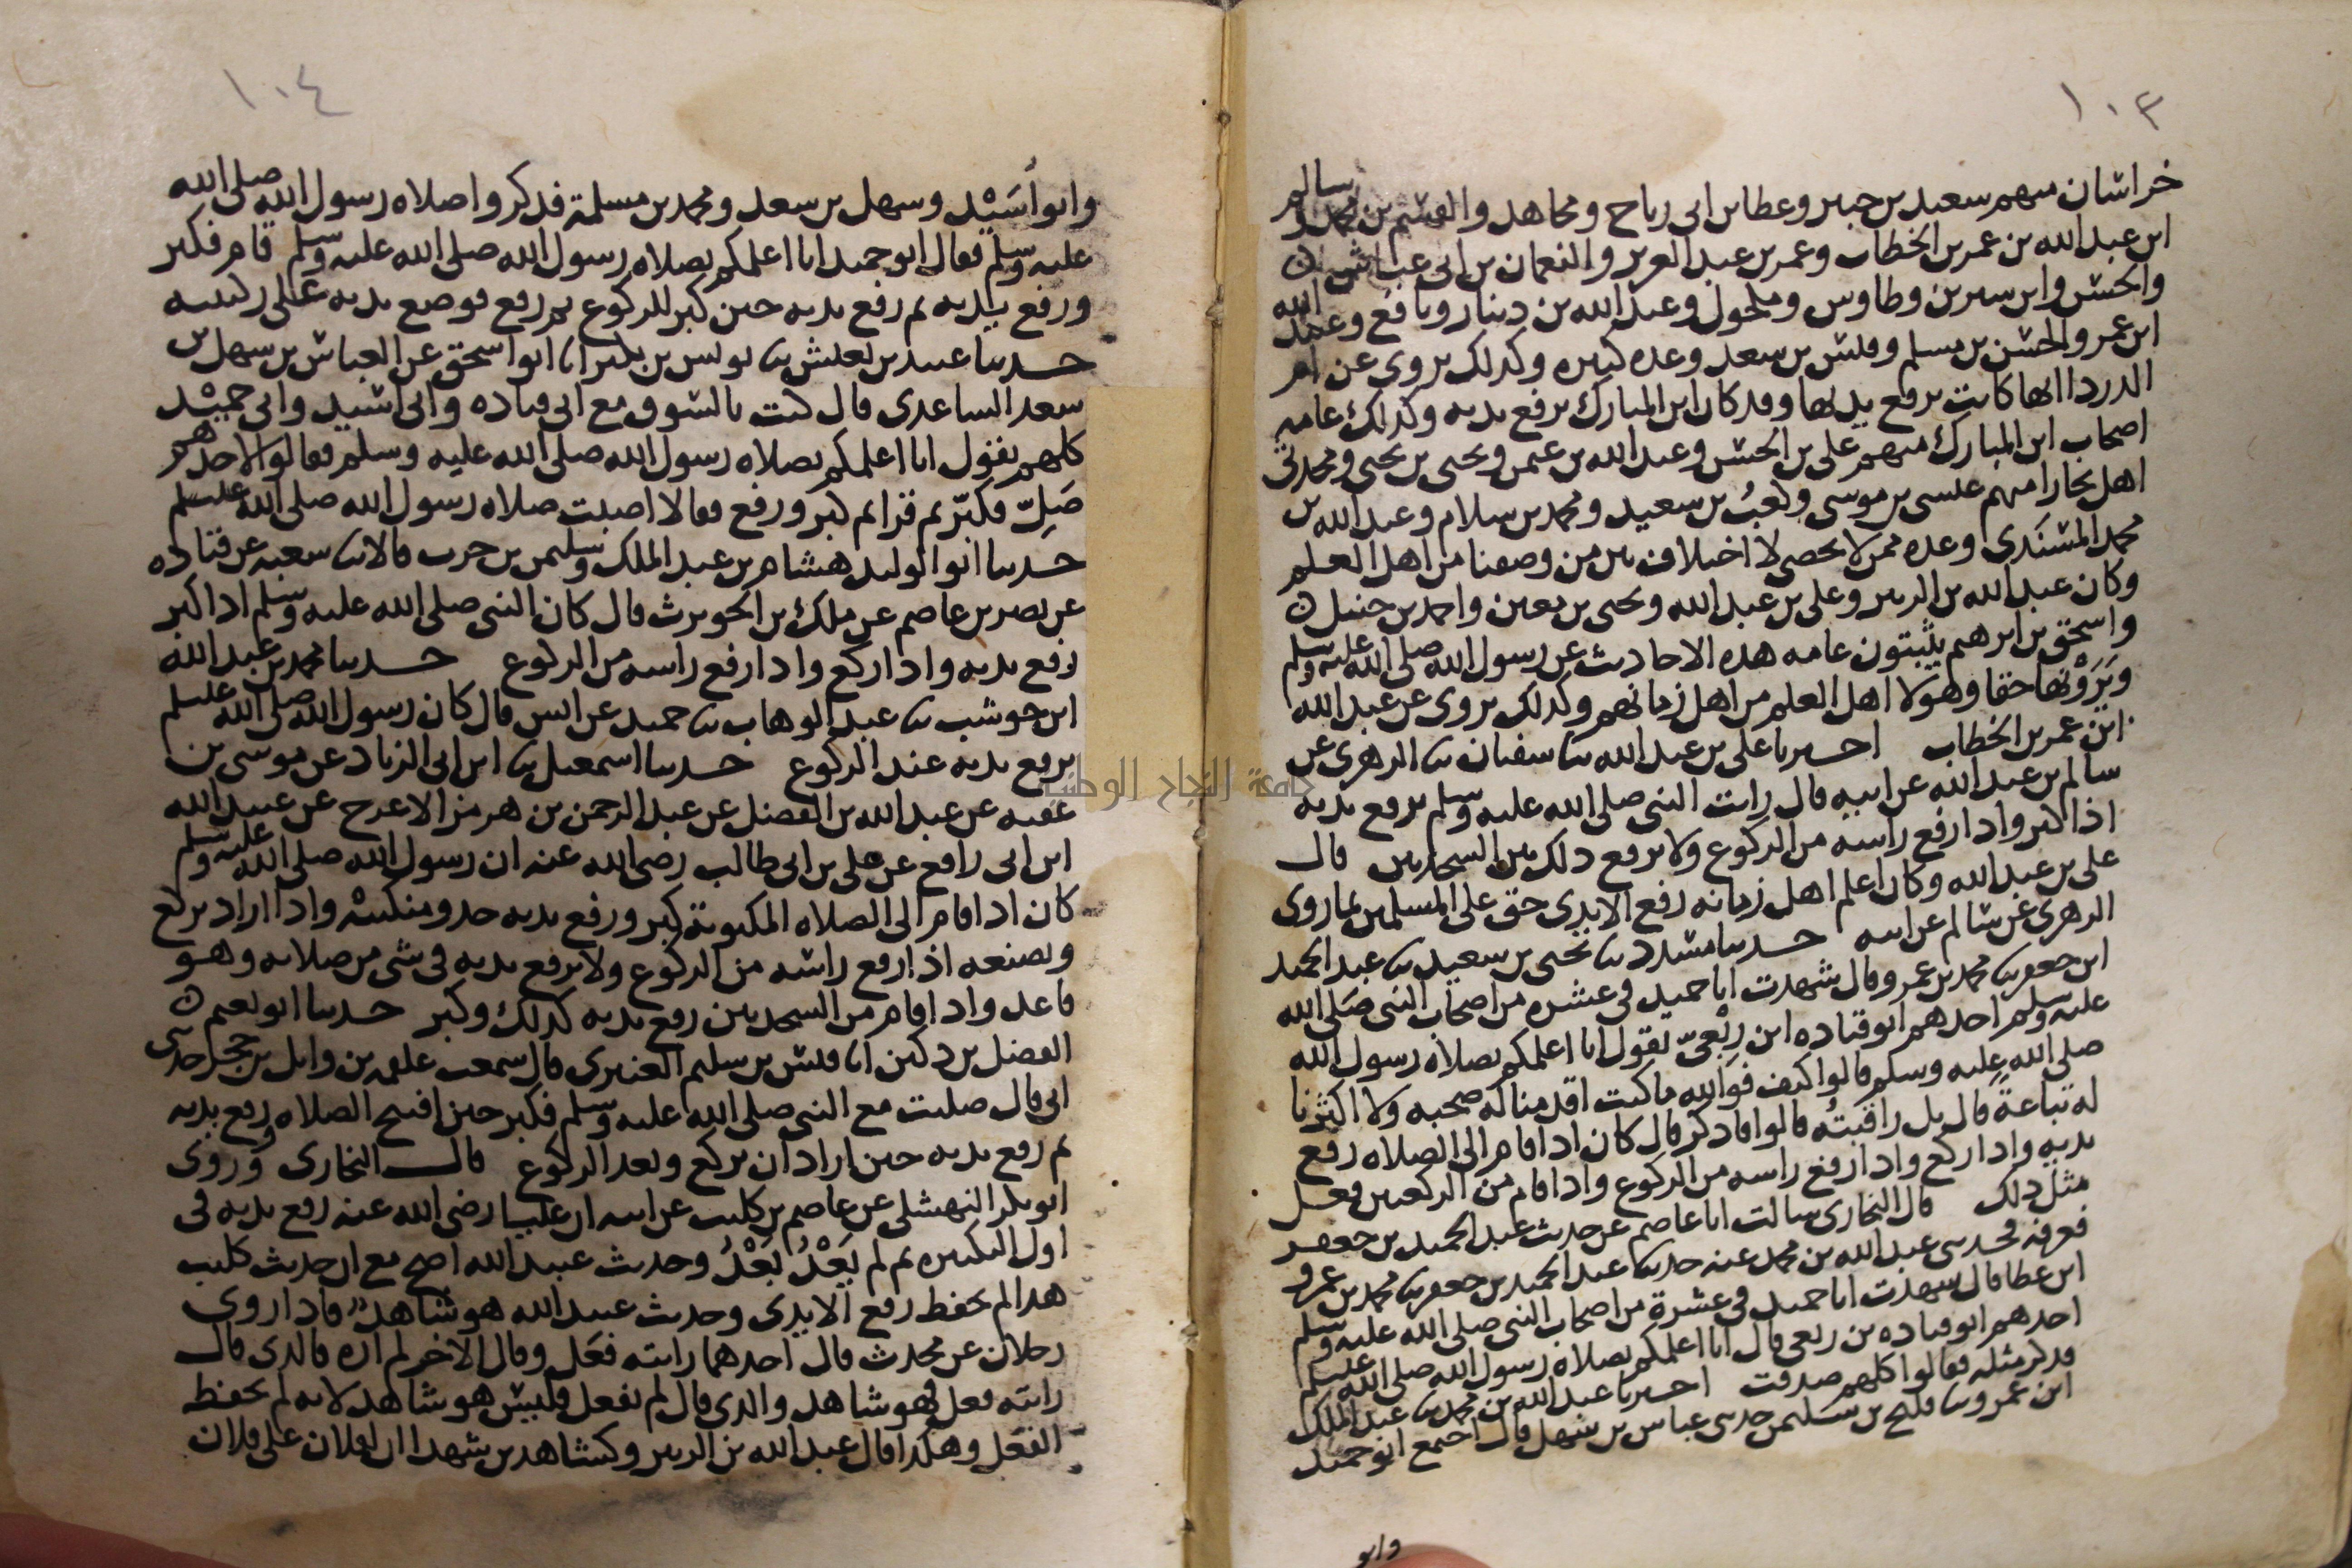 ١٠٣
خراسان منهم سعيد بن جبير وعطا بن ابي رباح ومجاهد والقسم بن محمد وسالم
ابن عبد الله بن عمر بن الخطاب وعمر بن عبد العزيز والنعمان بن ابي عياش
والحسن وابن سيرين وطاوس ومكحول وعبد الله بن دينار ونافع وعبيد الله
ابن عمر والحسن بن مسلم وقيس بن سعد وعده كثيره وكذلك يروى عن ام
الدرداء انها كانت ترفع يديها وقد كان ابن المبارك يرفع يديه وكذلك عامه
اصحاب ابن المبارك منهم على بن الحسن وعبد الله بن عمر ويحيى بن يحيى ومحدثي
اهل بخارا منهم عيسى بن موسى وكعب بن سعيد ومحمد بن سلام وعبد الله بن
محمد المسندي وعده ممن لا يحصى لا اختلاف بين من وصفنا من اهل العلم
وكان عبد الله بن الزبير وعلى بن عبد الله ويحيى بن معين واحمد بن حنبل
واسحق بن ابرهيم يثبتون عامه هذه الاحاديث عن رسول الله صلى الله عليه وسلم
ويرونها حقا وهولا اهل العلم من اهل زمانهم وكذلك يروى عن عبد الله
ابن عمر بن الخطاب اخبرنا على بن عبد الله ثنا سفيان ثنا الزهرى عن
سالم بن عبد الله عن ابيه قال رايت النبي صلى الله عليه وسلم يرفع يديه
اذا كبر واذا رفع راسه من الركوع ولا يرفع ذلك بين السجدتين قال
على بن عبد الله وكان اعلم اهل زمانه رفع الايدى حق على المسلمين بما روى
الزهرى عن سالم عن ابيه حدثنا مسدد ثنا يحيى بن سعيد ثنا عبد الحميد
ابن جعفر ثنا محمد بن عمرو قال شهدت ابا حميد في عشره من اصحاب النبي صلى الله
عليه وسلم احدهم ابو قتاده ابن ربعي يقول انا اعلمكم بصلاه رسول الله
صلى الله عليه وسلم قالوا كيف فوالله ما كنت اقدمنا له صحبه ولا اكثرنا
له تباعة قال بل راقبته قالوا فاذكر قال كان اذا قام الى الصلاه رفع
يديه واذا ركع واذا رفع راسه من الركوع واذا قام من الركعتين فعل
مثل ذلك قال البخارى سالت ابا عاصم عن حديث عبد الحميد بن جعفر
فعرفه فحدثني عبد الله بن محمد عنه حدثنا عبد الحميد بن جعفر ثنا محمد بن عمرو
ابن عطا قال شهدت ابا حميد في عشرة من اصحاب النبي صلى الله عليه وسلم
احدهم ابو قتاده بن ربعي قال انا اعلمكم بصلاه رسول الله صلى الله عليه وسلم
فذكر مثله فقالوا كلهم صدقت اخبرنا عبد الله بن محمد ثنا عبد الملك
ابن عمرو ثنا فليح بن سليمن حدثني عباس بن سهل قال اجتمع ابو حميد
وابو
١٠٤
وابو أسيد وسهل بن سعد ومحمد بن مسلمة فذكروا صلاه رسول الله صلى الله
عليه وسلم فقال ابو حميد انا اعلمكم بصلاه رسول الله صلى الله عليه وسلم قام فكبر
ورفع يديه ثم رفع يديه حين كبر للركوع ثم ركع فوضع يديه على ركبتيه
حدثنا عبيد بن يعيش ثنا يونس بن بكير انا ابو اسحق عن العباس بن سهل بن
سعد الساعدى قال كنت بالسوق مع ابي قتاده وابي اسيد وابي حميد
كلهم يقول انا اعلمكم بصلاه رسول الله صلى الله عليه وسلم فقالوا لاحدهم
صل فكبر ثم قرا ثم كبر ورفع فقالا اصبت صلاه رسول الله صلى الله عليه وسلم
حدثنا ابو الوليد هشام بن عبد الملك وسليمن بن حرب قالا ثنا شعبه عن قتاده
عن نصر بن عاصم عن ملك بن الحويرث قال كان النبي صلى الله عليه وسلم اذا كبر
رفع يديه واذا ركع واذا رفع راسه من الركوع حدثنا محمد بن عبد الله
ابن حوشب ثنا عبد الوهاب ثنا حميد عن انس قال كان رسول الله صلى الله عليه وسلم
يرفع يديه عند الركوع حدثنا اسمعيل ثنا ابن ابي الزناد عن موسى بن
عقبه عن عبد الله بن الفضل عن عبد الرحمن بن هرمز الاعرج عن عبيد الله
ابن ابي رافع عن على بن ابي طالب رضى الله عنه ان رسول الله صلى الله عليه وسلم
كان اذا قام الى الصلاه المكتوبة كبر ورفع يديه حذو منكبيه واذا اراد يركع
ويصنعه اذا رفع راسه من الركوع ولا يرفع يديه في شى من صلاته وهو
قاعد واذا قام من السجدتين رفع يديه كذلك وكبر حدثنا ابو نعيم
الفضل بن دكين انا قيس بن سليم العنبرى قال سمعت علقمه بن وايل بن حجر حدثني
ابي قال صليت مع النبي صلى الله عليه وسلم فكبر حين افتتح الصلاه ورفع يديه
ثم رفع يديه حين اراد ان يركع وبعد الركوع قال البخارى وروى
ابو بكر النهشلي عن عاصم بن كليب عن ابيه ان عليا رضى الله عنه رفع يديه في
اول التكبيره ثم لم يعد بعد وحديث عبيد الله اصح مع ان حديث كليب
هذا لم يحفظ رفع الايدى وحديث عبيد الله هو شاهد فاذا روى
رجلان عن محدث قال احدهما رايته فعل وقال الاخر لم اره فالذى قال
رايته فعل فهو شاهد والذى قال لم يفعل فليس هو شاهد لانه لم يحفظ
الفعل وهكذا قال عبد الله بن الزبير وكشاهدين شهدا ان لفلان على فلان
جامعة النجاح الوطنية